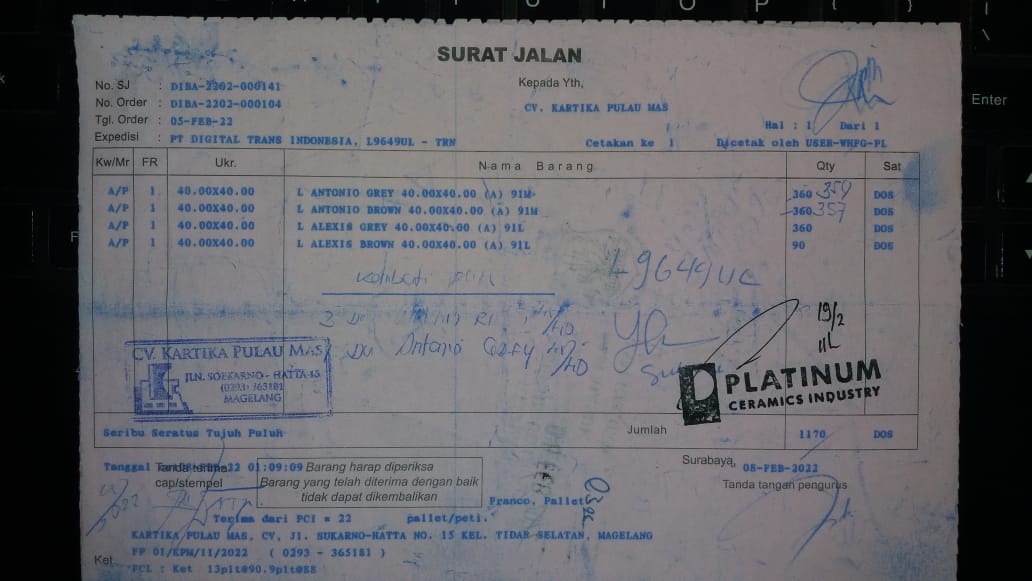 SURAT JALAN
No. SJ : DIBA-2202-000141
No. Order : DIBA-2202-000104
Tgl. Order : 05-FEB-22
Expedisi : PT DIGITAL TRANS INDONESIA, L9649UL - TRN
Kepada Yth,
CV. KARTIKA PULAU MAS
Hal : 1 Dari 1
Cetakan ke 1 Dicetak oleh USER-WHFG-PL
Kw/Mr FR Ukr. Nama Barang Qty Sat
A/P 1 40.00X40.00 L ANTONIO GREY 40.00X40.00 (A) 91M 360 359 DOS
A/P 1 40.00X40.00 L ANTONIO BROWN 40.00X40.00 (A) 91M 360 357 DOS
A/P 1 40.00X40.00 L ALEXIS GREY 40.00X40.00 (A) 91L 360 DOS
A/P 1 40.00X40.00 L ALEXIS BROWN 40.00X40.00 (A) 91L 90 DOS
L9649UL
19/2
CV. KARTIKA PULAU MAS
JLN. SOEKARNO - HATTA 15
(0293) 365181
MAGELANG
PLATINUM
CERAMICS INDUSTRY
Seribu Seratus Tujuh Puluh Jumlah 1170 DOS
Tanggal 22 01:09:09
Tanda terima
cap/stempel
Barang harap diperiksa
Barang yang telah diterima dengan baik
tidak dapat dikembalikan
Surabaya, 08-FEB-2022
Tanda tangan pengurus
Franco, Pallet
Terima dari PCI = 22 pallet/peti.
KARTIKA PULAU MAS, CV, Jl. SUKARNO-HATTA NO. 15 KEL. TIDAR SELATAN, MAGELANG
PP 01/KPM/II/2022 ( 0293 - 365181 )
Ket.
PCL : Ket 13plt@90.9plt@88